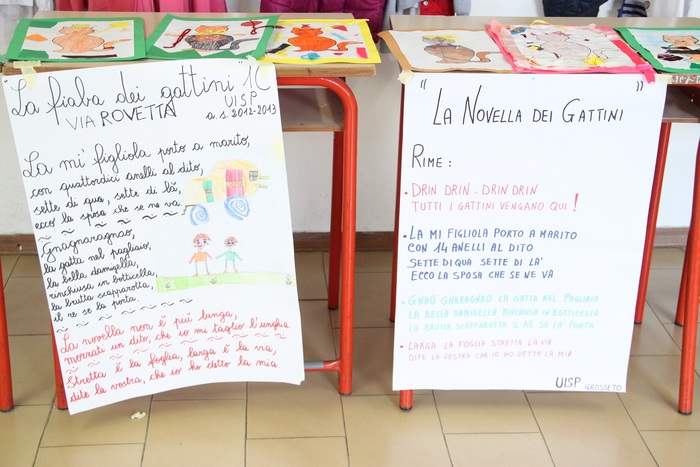 "La fiaba dei gattini" 1C
VIA ROVETTA UISP
a s. 2012-2013
La mi' figliola porto a marito,
con quattordici anelli al dito,
sette di qua, sette di là,
ecco la sposa che se ne va.
Gnagnaragnao,
la gatta nel pagliaio,
la bella damigella,
rinchiusa in botticella,
la brutta scapparotta,
il re se la porta.
La novella non è più lunga,
mozzati un dito, che io mi taglio l'unghia
Stretta è la foglia, larga è la via,
dite la vostra, che io ho detto la mia
"LA NOVELLA DEI GATTINI"
RIME:
• DRIN DRIN - DRIN DRIN
TUTTI I GATTINI VENGANO QUI!
• LA MI FIGLIOLA PORTO A MARITO
CON 14 ANELLI AL DITO
SETTE DI QUA SETTE DI LA'
ECCO LA SPOSA CHE SE NE VA
• GNAÒ GNARAGNAÒ LA GATTA NEL PAGLIAIO
LA BELLA DAMIGELLA RINCHIUSA IN BOTTICELLA
LA BRUTTA SCAPPAROTTA IL RE SE LA PORTA
• LARGA LA FOGLIA STRETTA LA VIA
DITE LA VOSTRA CHE IO HO DETTO LA MIA
UISP GROSSETO